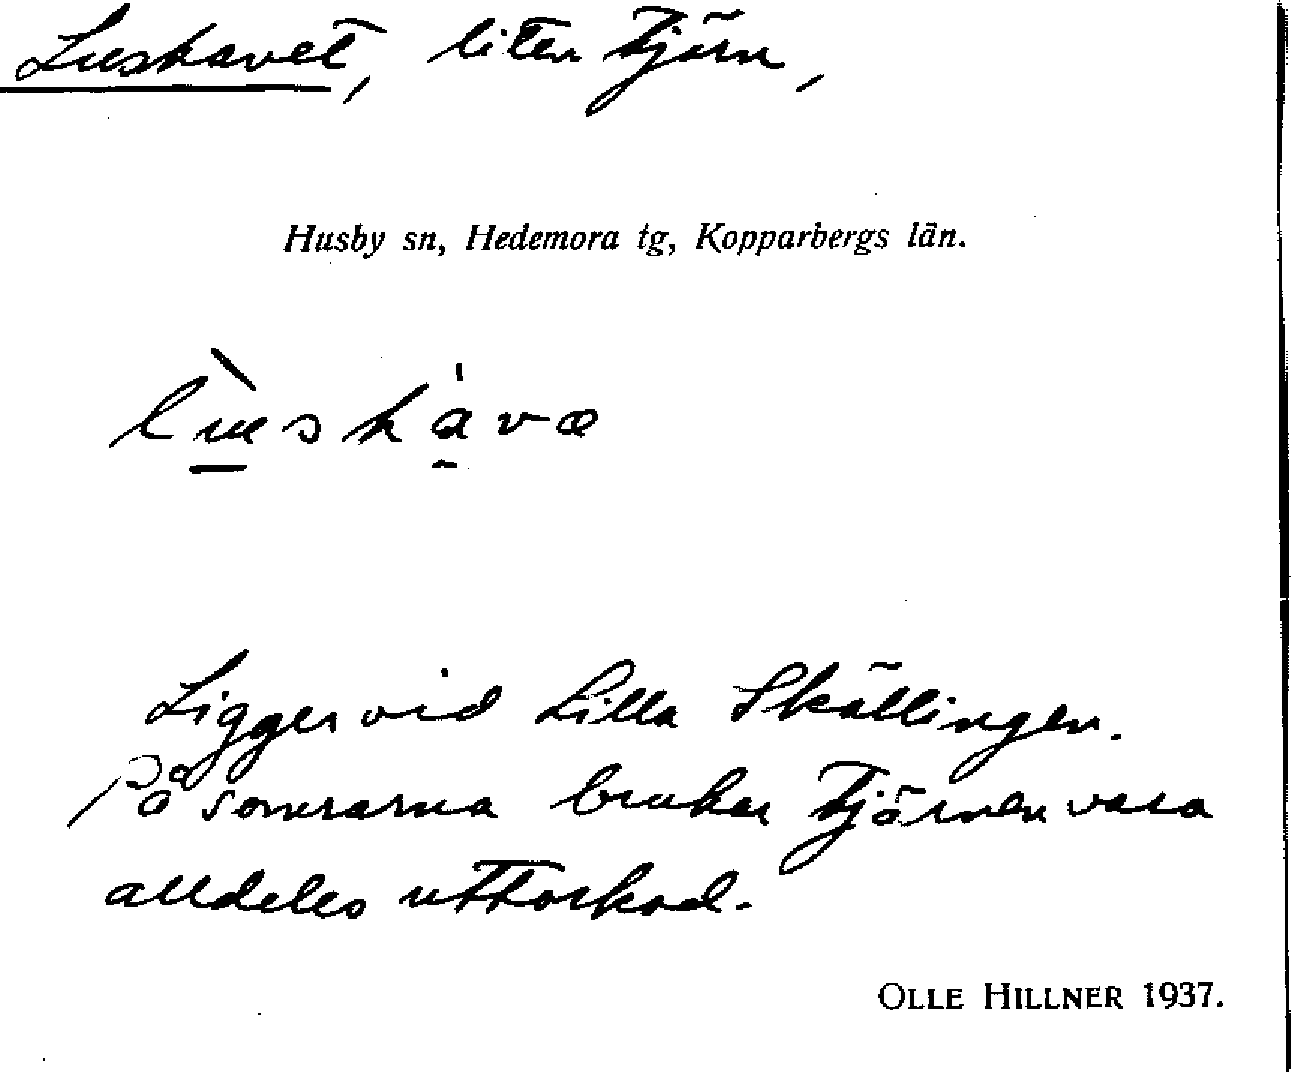 Lushavet, liten tjärn,
Husby sn, Hedemora tg, Kopparbergs län.
Ligger vid Lilla Skällingen.
På somrarna brukar tjärnen vara
alldeles uttorkad.
OLLE HILLNER 1937.